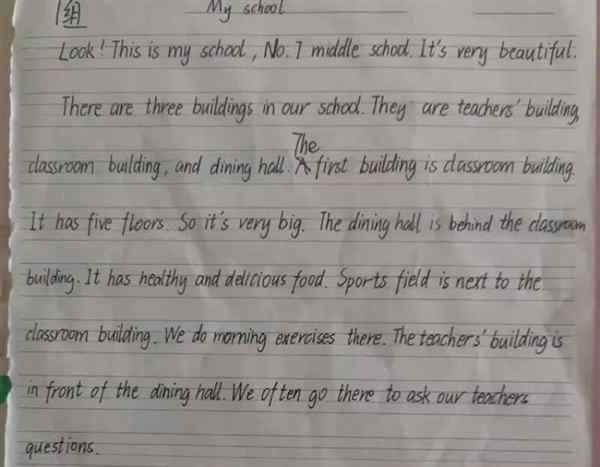 1组
My school
Look! This is my school, No. 7 middle school. It's very beautiful.
There are three buildings in our school. They are teachers' building,
classroom building, and dining hall. The first building is classroom building.
It has five floors. So it's very big. The dining hall is behind the classroom
building. It has healthy and delicious food. Sports field is next to the
classroom building. We do morning exercises there. The teachers' building is
in front of the dining hall. We often go there to ask our teachers
questions.